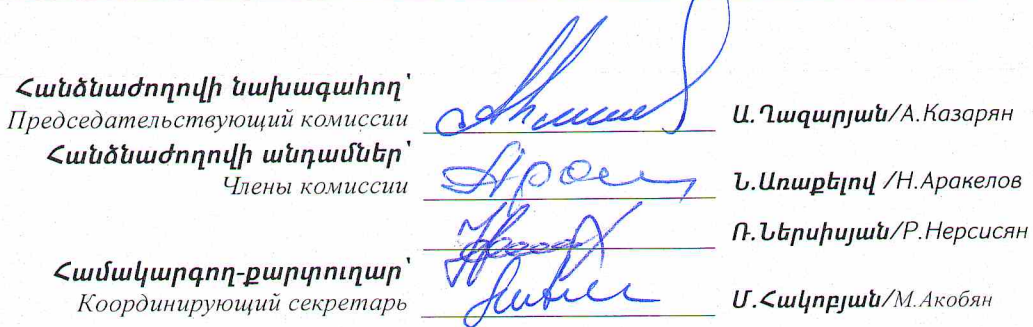 Հանձնաժողովի նախագահող՝
Председательствующий комиссии
Ա.Ղազարյան/А.Казарян
Հանձնաժողովի անդամներ՝
Члены комиссии
Ն.Առաքելով /Н.Аракелов
Ռ.Ներսիսյան/Р.Нерсисян
Համակարգող-քարտուղար՝
Координирующий секретарь
Մ.Հակոբյան/М.Акобян